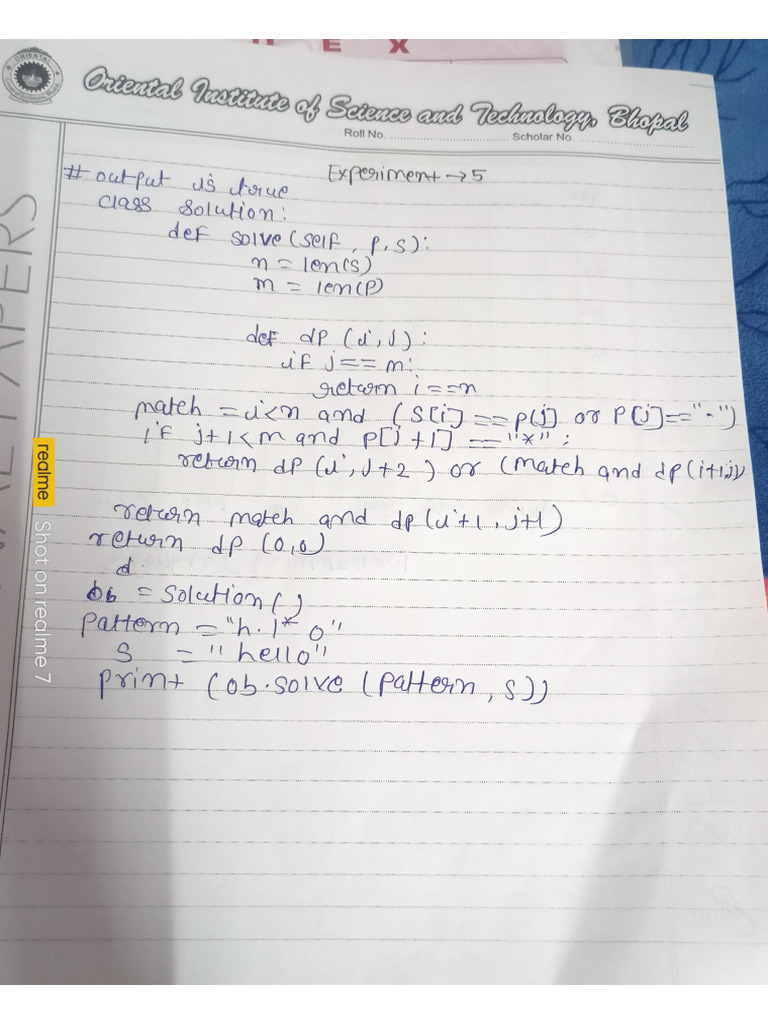 E X
Oriental Institute of Science and Technology, Bhopal
Roll No. ........................ Scholar No. ........................
Experiment → 5
# output is true
class Solution:
def solve(self, p,s):
n = len(s)
m = len(p)
def dp (i,j):
if j== m:
return i==n
match = i<n and (s[i] == p[j] or p[j]=="-")
if j+1<m and p[j+1] == "*":
return dp (i, j+2) or (match and dp(i+1,j)
return match and dp(i+1, j+1)
return dp (0,0)
d
ob = solution()
pattern = "h.l* o"
s = "hello"
print (ob.solve (pattern, s))
realme Shot on realme 7